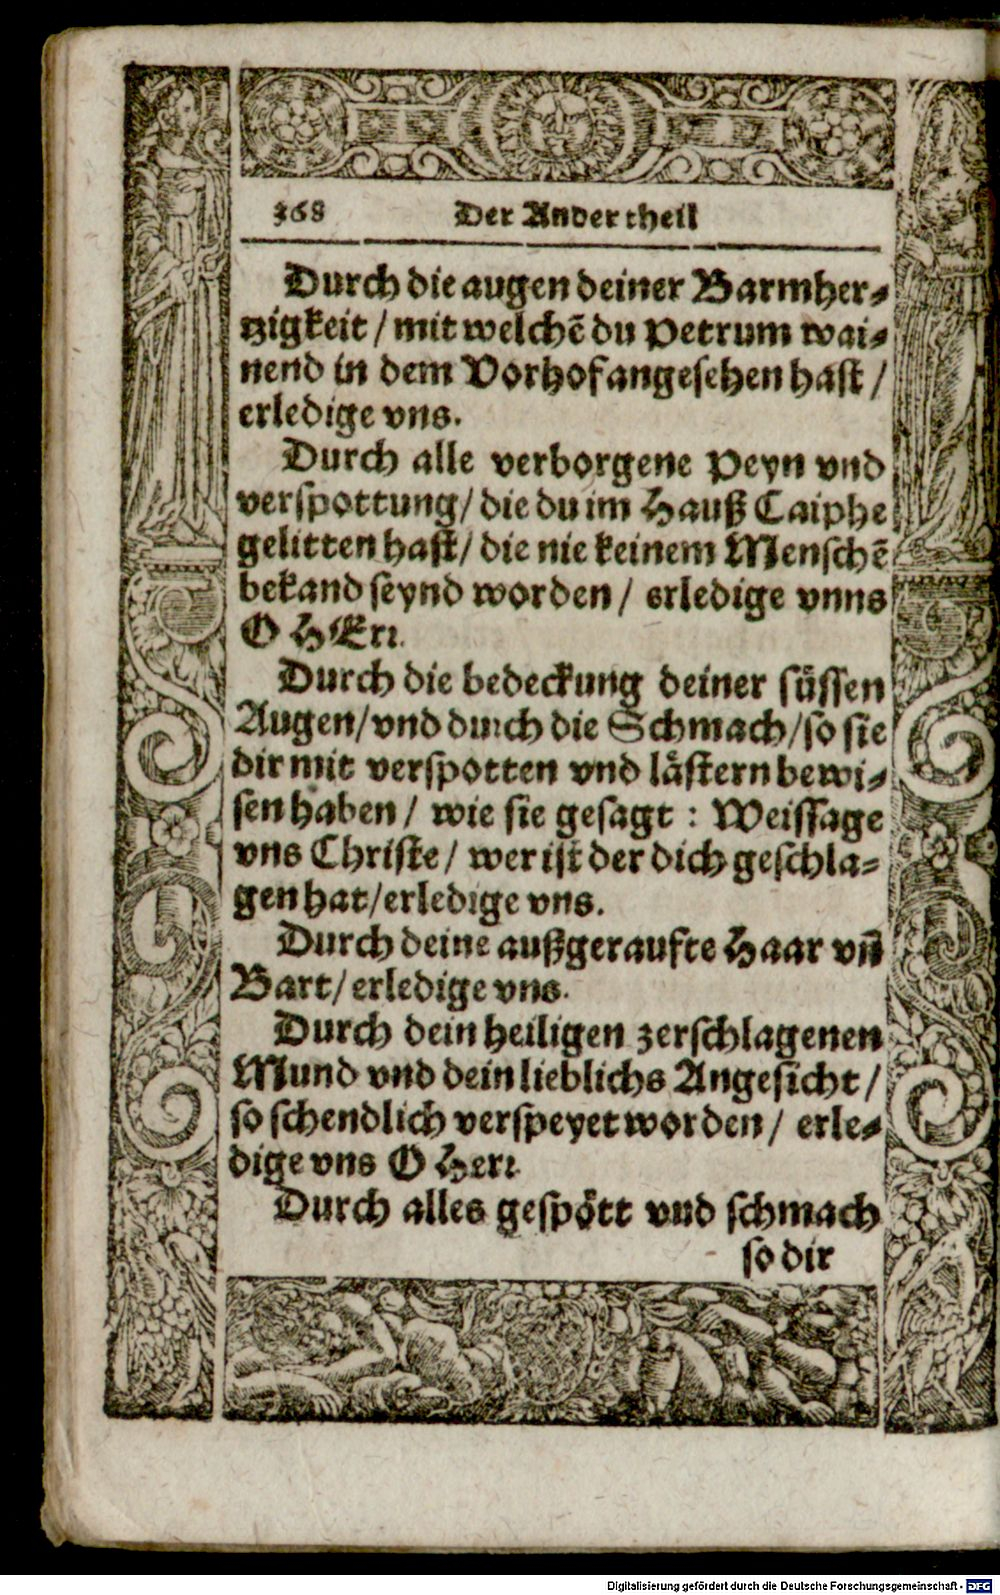 368 Der Ander theil
Durch die augen deiner Barmher-
tzigkeit / mit welchē du Petrum wai-
nend in dem Vorhof angesehen hast /
erledige vns.
Durch alle verborgene Peyn vnd
verspottung/ die du im Hauß Caiphe
gelitten hast/ die nie keinem Menschē
bekand seynd worden / erledige vnns
O HErr.
Durch die bedeckung deiner süssen
Augen/vnd durch die Schmach/so sie
dir mit verspotten vnd lästern bewi-
sen haben / wie sie gesagt : Weissage
vns Christe / wer ist der dich geschla-
gen hat/erledige vns.
Durch deine außgeraufte Haar vn̄
Bart/ erledige vns.
Durch dein heiligen zerschlagenen
Mund vnd dein lieblichs Angesicht /
so schendlich verspeyet worden / erle-
dige vns O Herr
Durch alles gespött vnd schmach
so dir
Digitalisierung gefördert durch die Deutsche Forschungsgemeinschaft - DFG